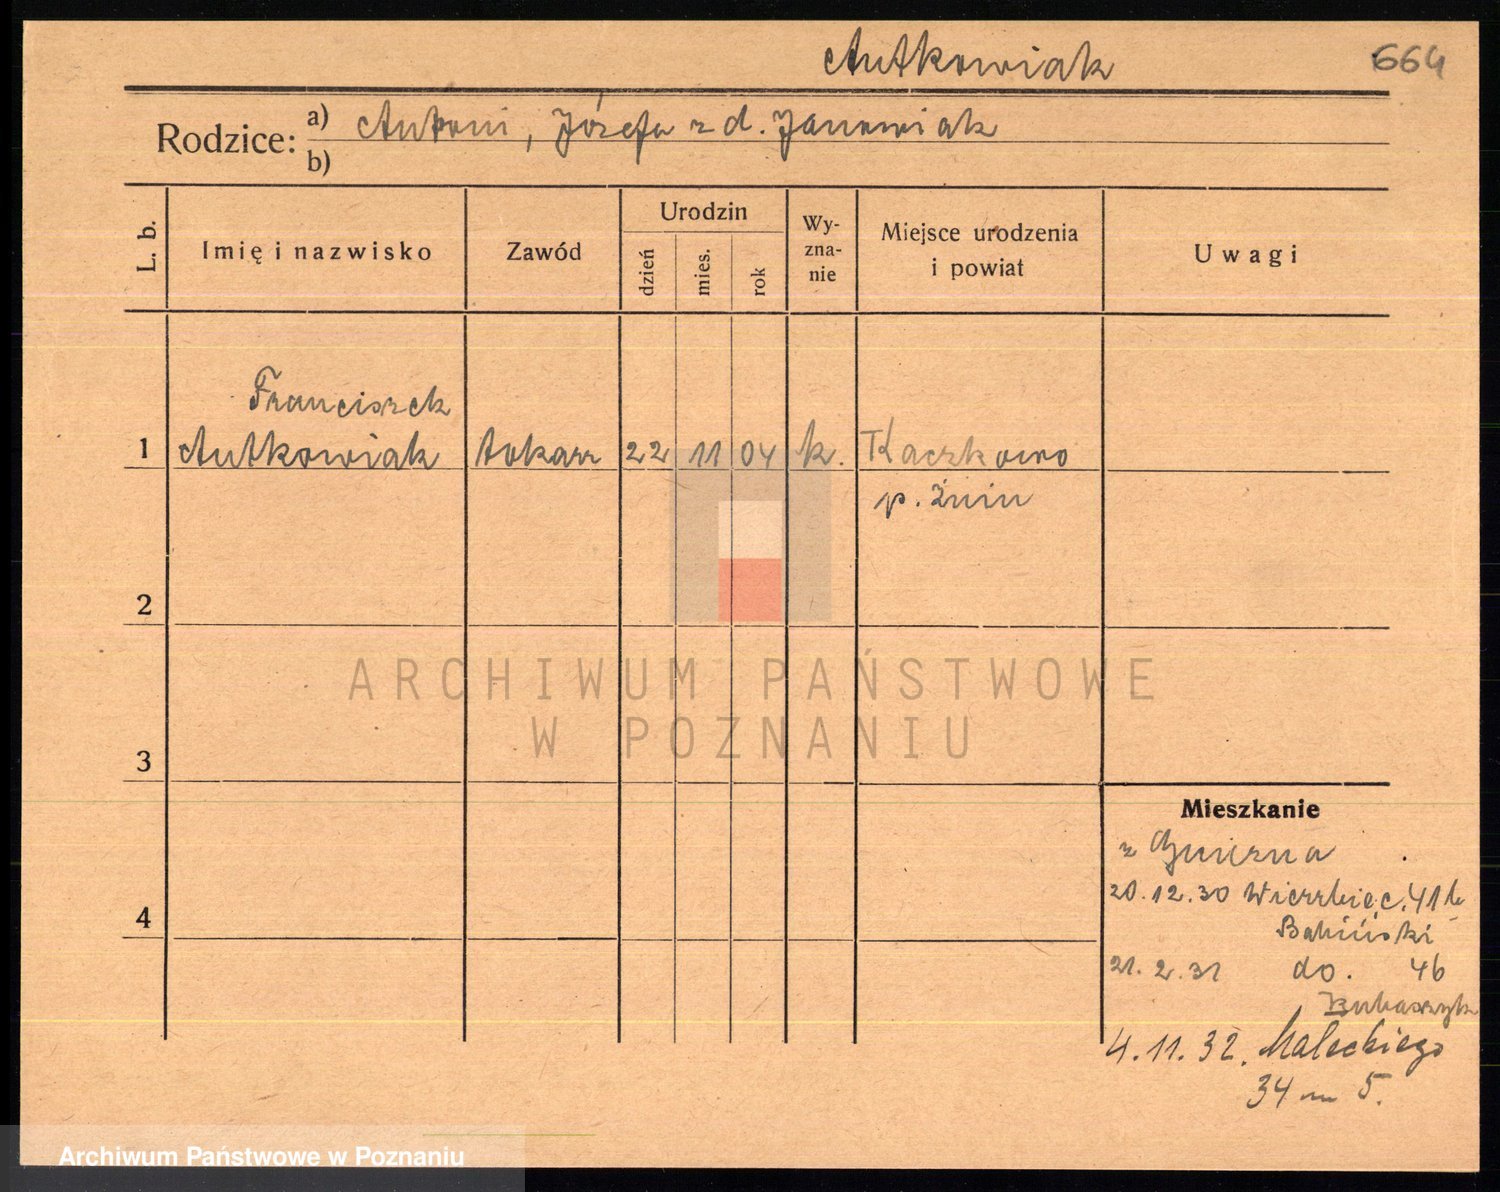 Antkowiak 664
Rodzice: a) Antoni, Józefa z d. Janowiak
b)
L. b.
Imię i nazwisko
Zawód
Urodzin
dzień
mies.
rok
Wy-
zna-
nie
Miejsce urodzenia
i powiat
Uwagi
Franciszek
1 Antkowiak tokarz 22 11 04 k. Kaczkowo
p. Żnin
2
ARCHIWUM PAŃSTWOWE
W POZNANIU
3
Mieszkanie
z Gniezna
20.12.30 Wierzbięc. 41b
4
21.2.31 do. 46
4.11.32. Małeckiego
34 m 5.
Archiwum Państwowe w Poznaniu